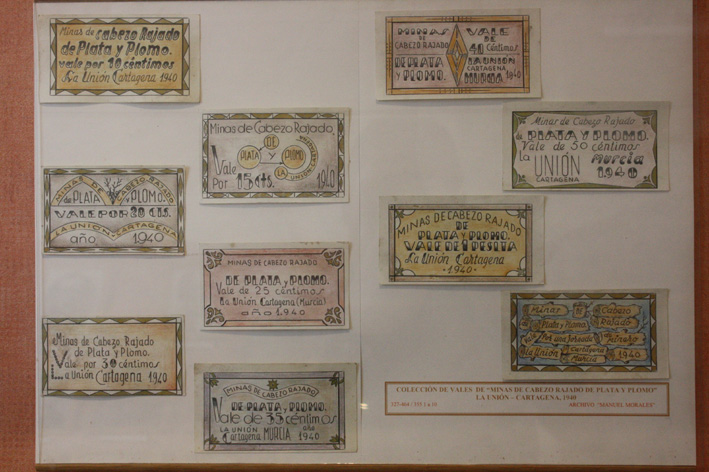 Minas de cabezo Rajado
de Plata y Plomo.
vale por 10 céntimos
La Unión Cartagena 1940
Minas de Cabezo Rajado
DE
PLATA Y PLOMO
LA UNION
Vale
Por 15 cts. 1940
MINAS DE CABEZO RAJADO
de PLATA y PLOMO.
VALE POR 20 CTS.
LA UNION CARTAGENA
año 1940
MINAS DE CABEZO RAJADO
DE PLATA y PLOMO.
Vale de 25 céntimos
la Unión Cartagena (Murcia)
año 1940
Minas de Cabezo Rajado
de Plata y Plomo.
Vale por 30 céntimos
La Unión Cartagena 1940
MINAS DE CABEZO RAJADO
DE PLATA y PLOMO.
Vale de 35 céntimos
LA UNIÓN año
Cartagena MURCIA 1940
MINAS
DE CABEZO RAJADO
DE PLATA
y PLOMO.
VALE
DE
40 Céntimos
LA UNIÓN
CARTAGENA
MURCIA 1940
Minas de Cabezo Rajado
de PLATA Y PLOMO.
Vale de 50 céntimos
la UNIÓN Murcia
CARTAGENA 1940
MINAS DE CABEZO RAJADO
DE
PLATA Y PLOMO.
VALE DE 1 PESETA
La Unión Cartagena
-1940-
Minas DE Cabezo
de Plata y Plomo. Rajado
Por una Jornada
la Unión Cartagena
Murcia 1940
COLECCIÓN DE VALES DE "MINAS DE CABEZO RAJADO DE PLATA Y PLOMO"
LA UNIÓN – CARTAGENA, 1940
ARCHIVO "MANUEL MORALES"